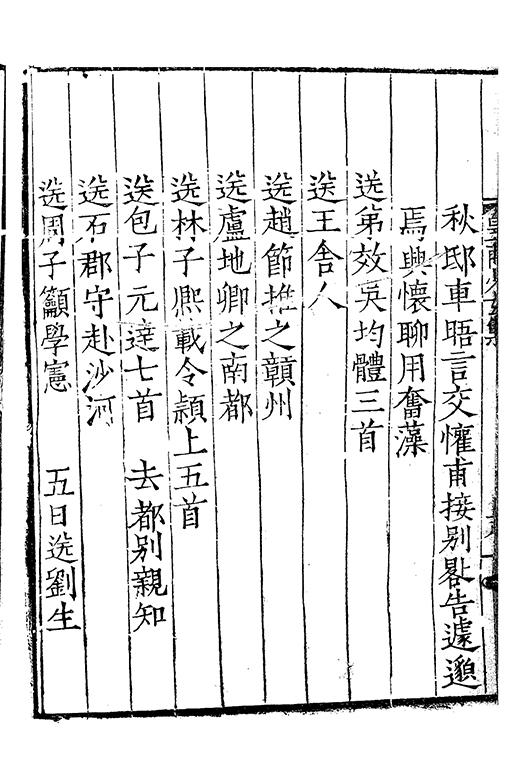 秋邸車晤言交懽甫接別畧告遽邈
焉興懷聊用奮藻
送弟效吳均體三首
送王舍人
送趙節推之贛州
送盧地卿之南都
送林子熈載令潁上五首
送包子元達七首　去都別親知
送石郡守赴沙河
送周子籲學憲　五日送劉生